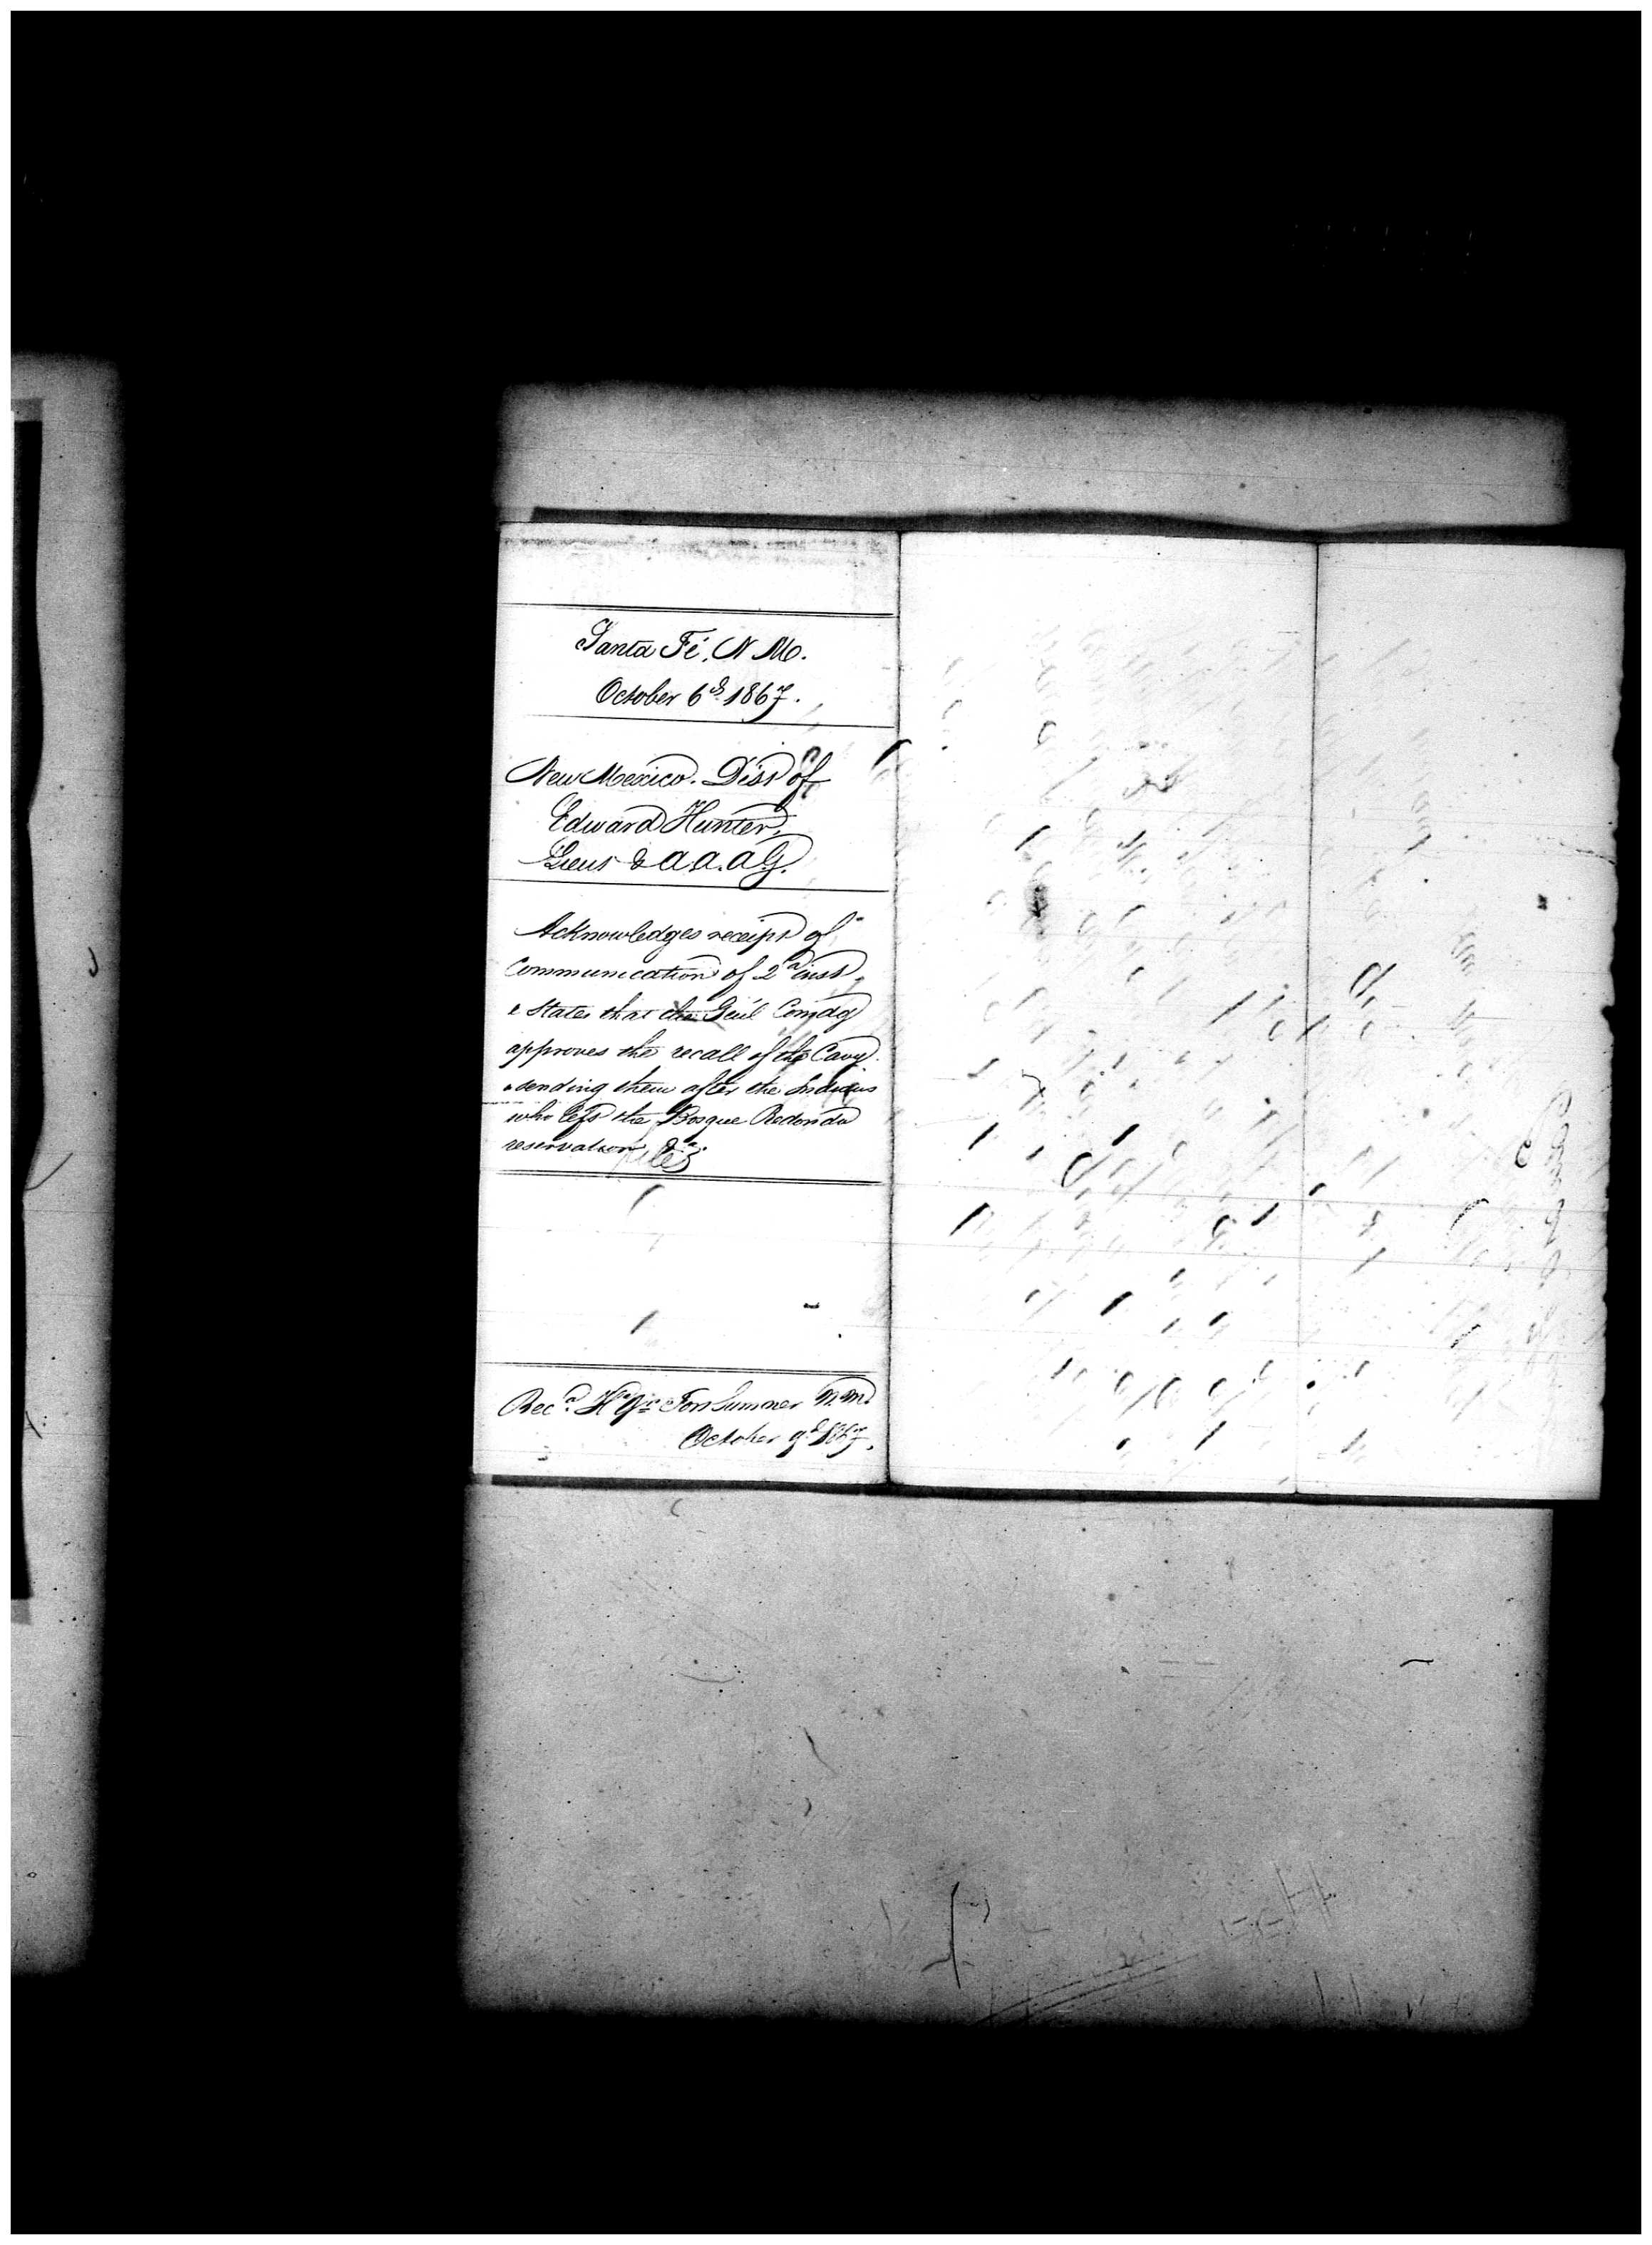 Santa Fé, N M.
October 6th 1867.
New Mexico. Dist of
Edward Hunter,
Lieut & a a. a G.
Acknowledges receipt of
Communication of 2d inst,
& States that the Genl Comdg
approves the recall of the Cavy.
& sending them after the Indians
who left the Bosque Redondo
reservation, &c.
Recd. Hd Qrs Fort Sumner N.M.
October 9th 1867.